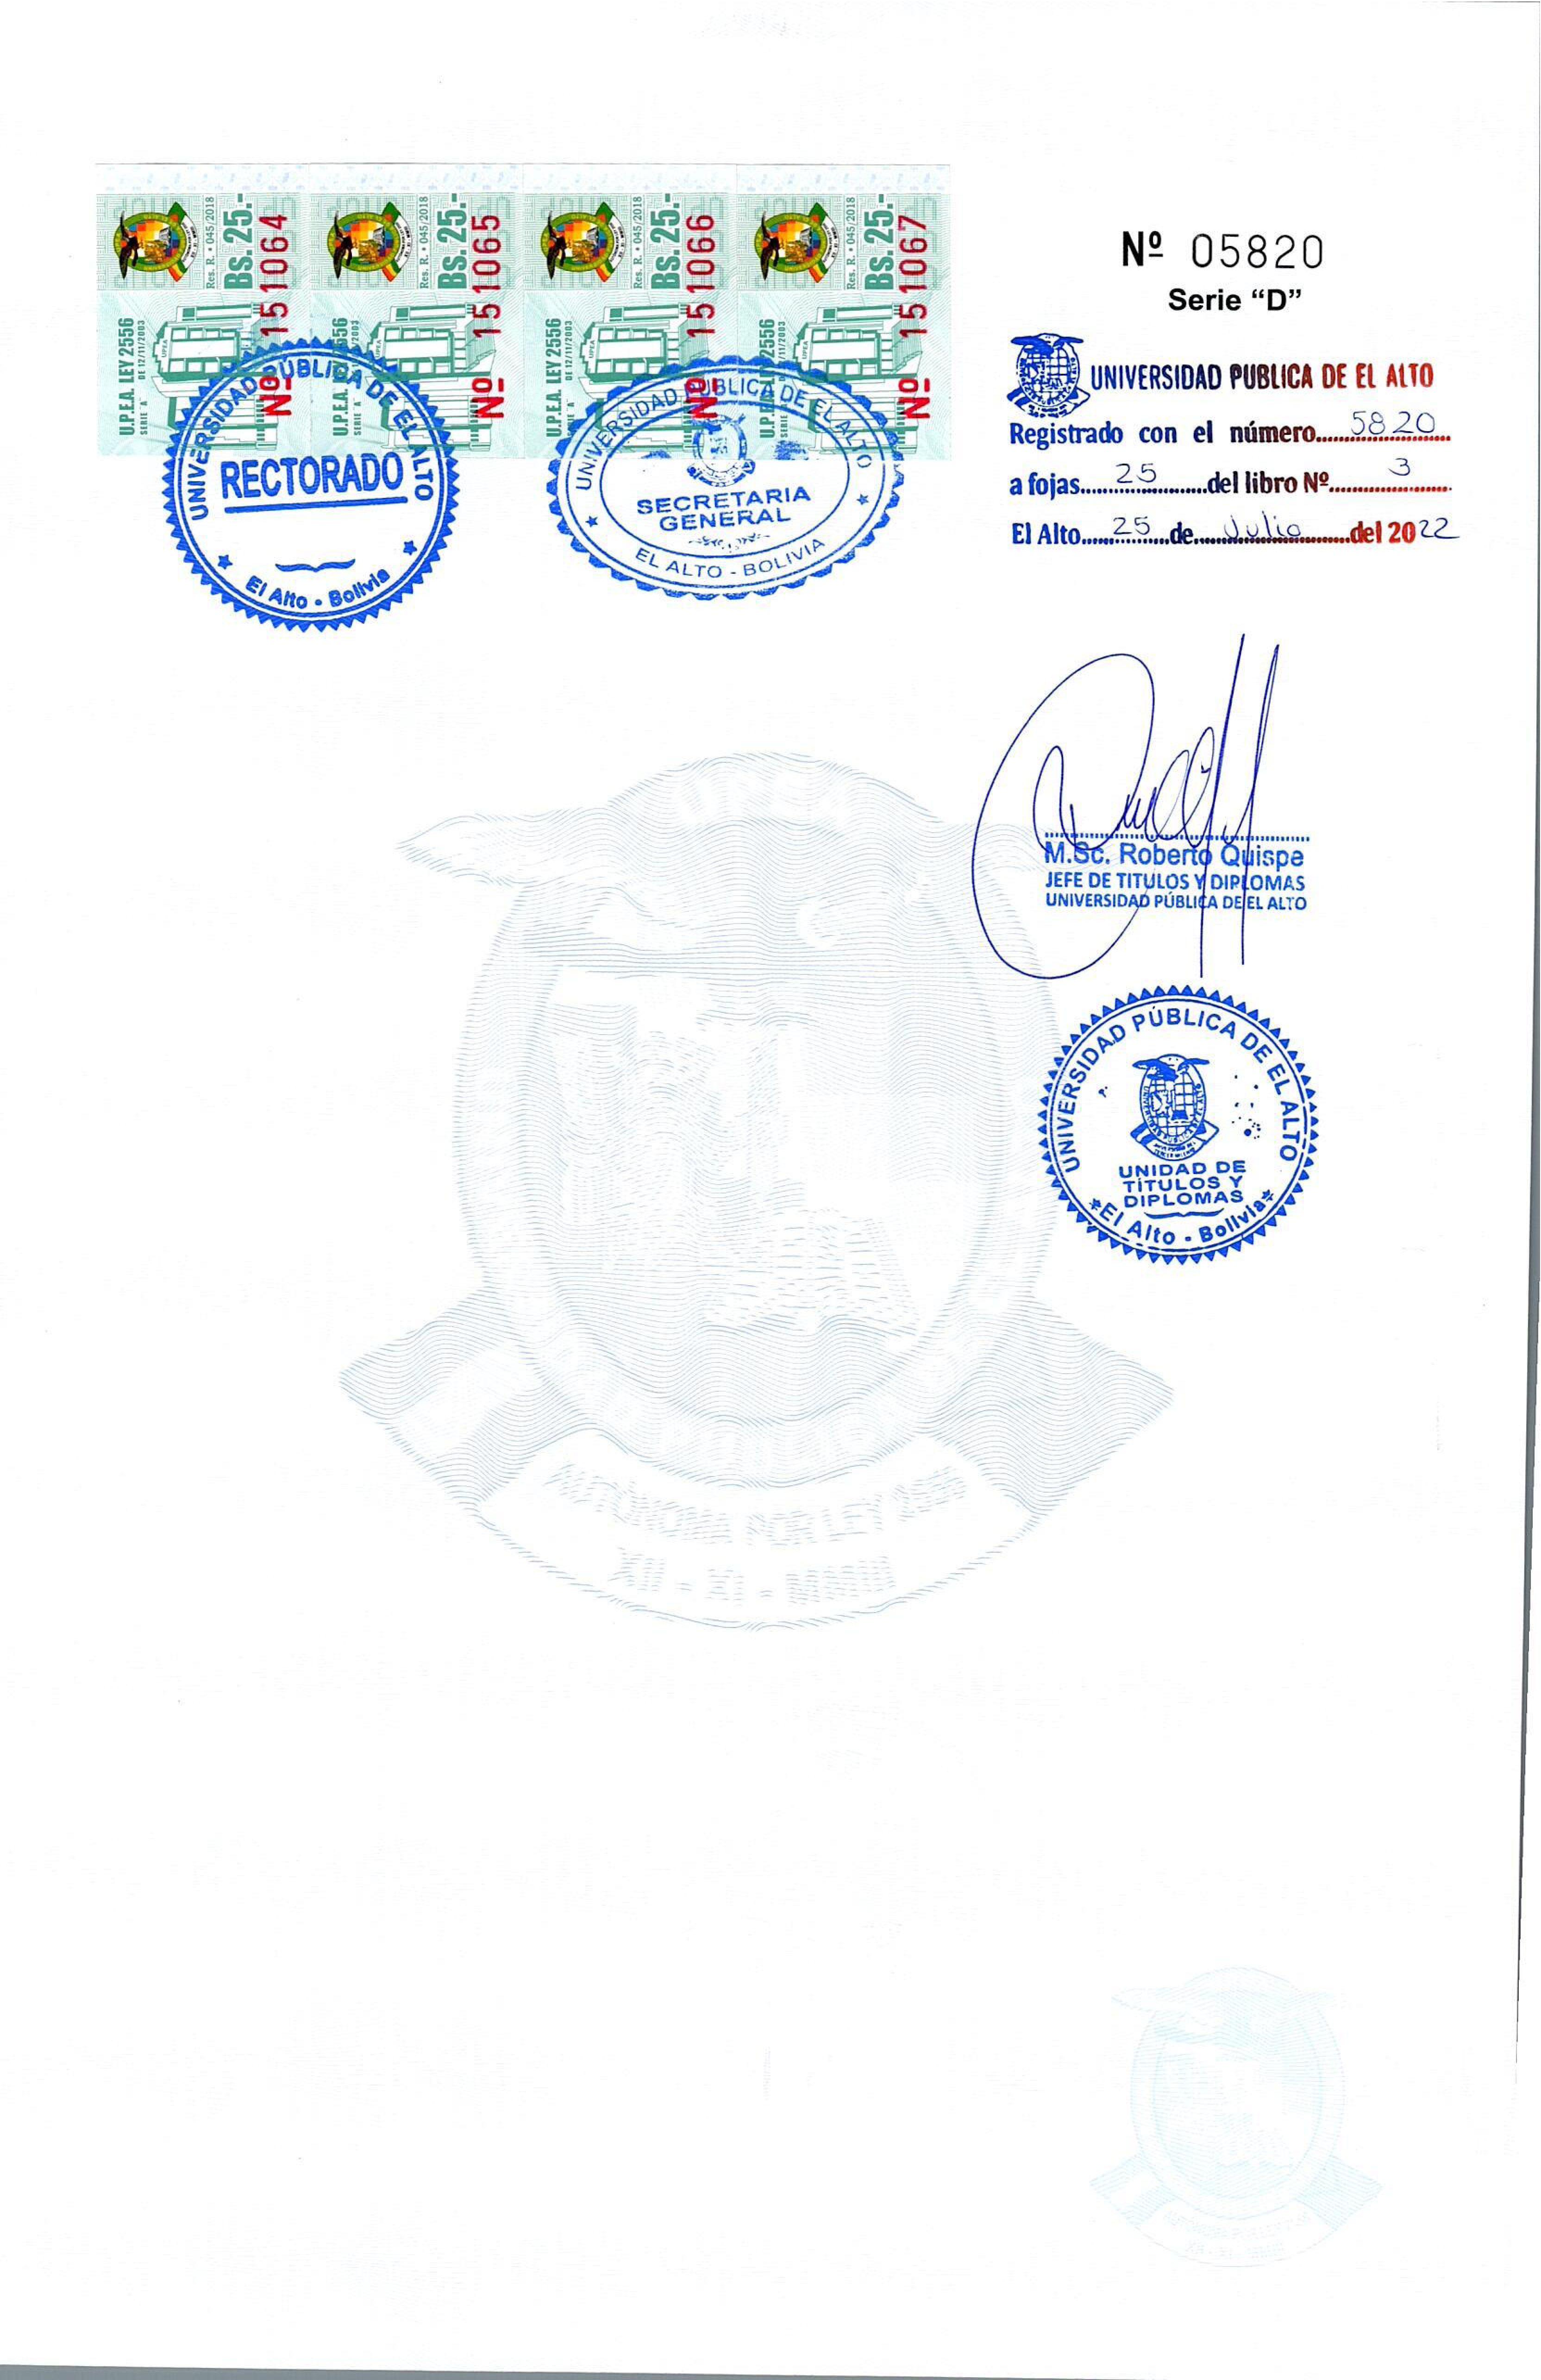 U.P.E.A. LEY 2556
DE 12/11/2003
SERIE "A"
UPEA
Res. R. • 045/2018
Bs. 25.-
Nº 151064
2556
2003
SERIE "A"
UPEA
Res. R. • 045/2018
Bs. 25.-
Nº 151065
U.P.E.A. LEY 2556
DE 12/11/2003
SERIE "A"
UPEA
Res. R. • 045/2018
Bs. 25.-
Nº 151066
U.P.E.A. 2556
SERIE "A"
UPEA
Res. R. • 045/2018
Bs. 25.-
Nº 151067
UNIVERSIDAD PÚBLICA DE EL ALTO
RECTORADO
El Alto • Bolivia
UNIVERSIDAD PUBLICA DE EL ALTO
SECRETARIA
GENERAL
EL ALTO - BOLIVIA
Nº 05820
Serie “D”
UNIVERSIDAD PUBLICA DE EL ALTO
Registrado con el número 5820
a fojas 25 del libro Nº 3
El Alto 25 de Julio del 2022
M.Sc. Roberto Quispe
JEFE DE TITULOS Y DIPLOMAS
UNIVERSIDAD PÚBLICA DE EL ALTO
UNIVERSIDAD PÚBLICA DE EL ALTO
UNIDAD DE
TÍTULOS Y
DIPLOMAS
El Alto - Bolivia
AUTÓNOMA POR LEY 2556
XII - XI - MMIII